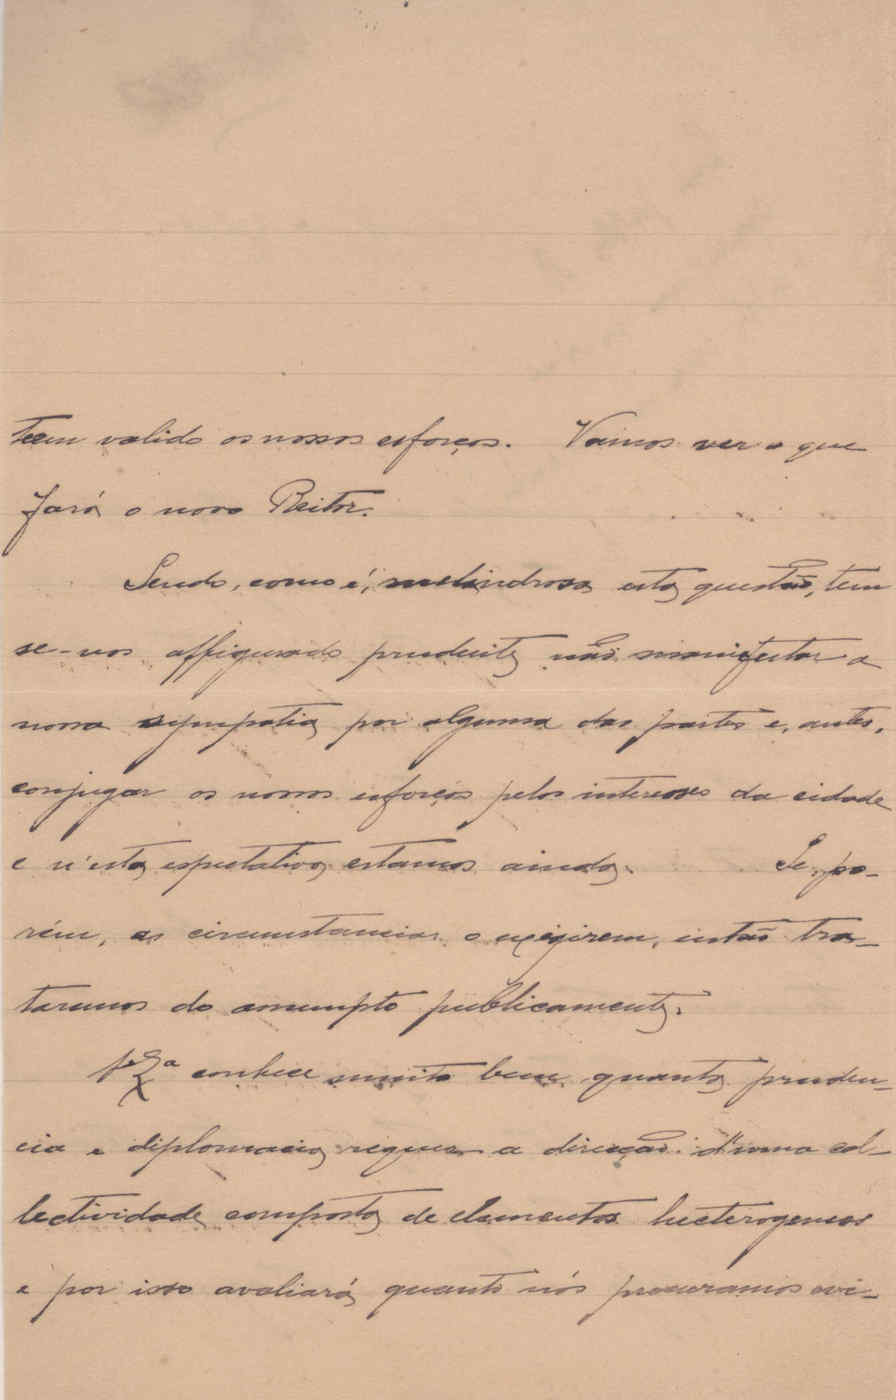 teem valido os nossos esforços. Vamos ver o que
fará o novo Reitor.
Sendo, como é, melindrosa esta questão, tem
se-nos affigurado prudente não manifestar a
nossa sympatia por alguma das partes e, antes,
conjugar os nossos esforços pelos interesses da cidade
e n'esta espectativa estamos ainda. Se, po-
rém, as circumstancias o exigirem, então tra-
taremos do assumpto publicamente.
V. Exª conhece muito bem quanta pruden-
cia e diplomacia requer a direcção d'uma col-
lectividade composta de elementos hecterogeneos
e por isso avaliará quanto nós procuramos evi-